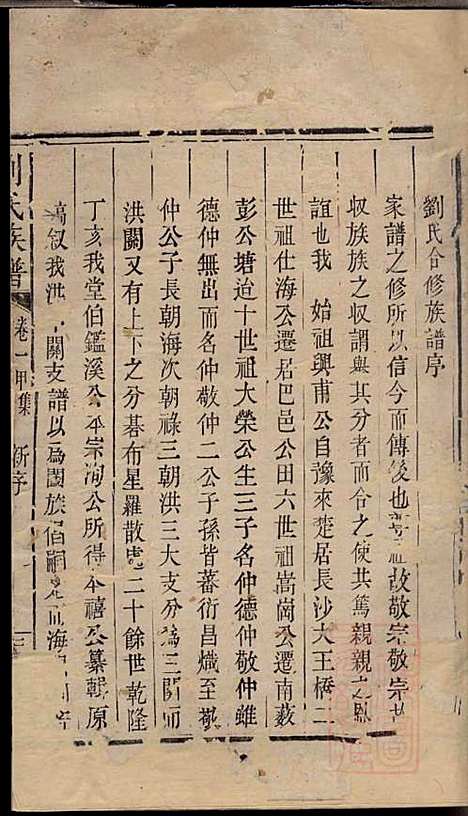 劉氏合修族譜序
家譜之修所以信今而傳後也祖故敬宗敬宗
収族族之収謂與其分者而合之使共篤親親之
誼也我 始祖興甫公自豫來楚居長沙大王橋二
世祖仕海公遷居巴邑公田六世祖嵩崗公遷南薮
彭公塘迨十世祖大榮公生三子名仲德仲敬仲雖
德仲無出而名仲敬仲二公子孫皆蕃衍昌熾至
仲公子長朝海次朝祿三朝洪三大支分為三開而
洪關又有上下之分碁布星羅散處二十餘世乾隆
丁亥我堂伯鑑溪公本宗洵公所得本禧公纂輯原
稿叙我洪關支譜以為闔族海
劉氏族譜 卷一甲集 新序